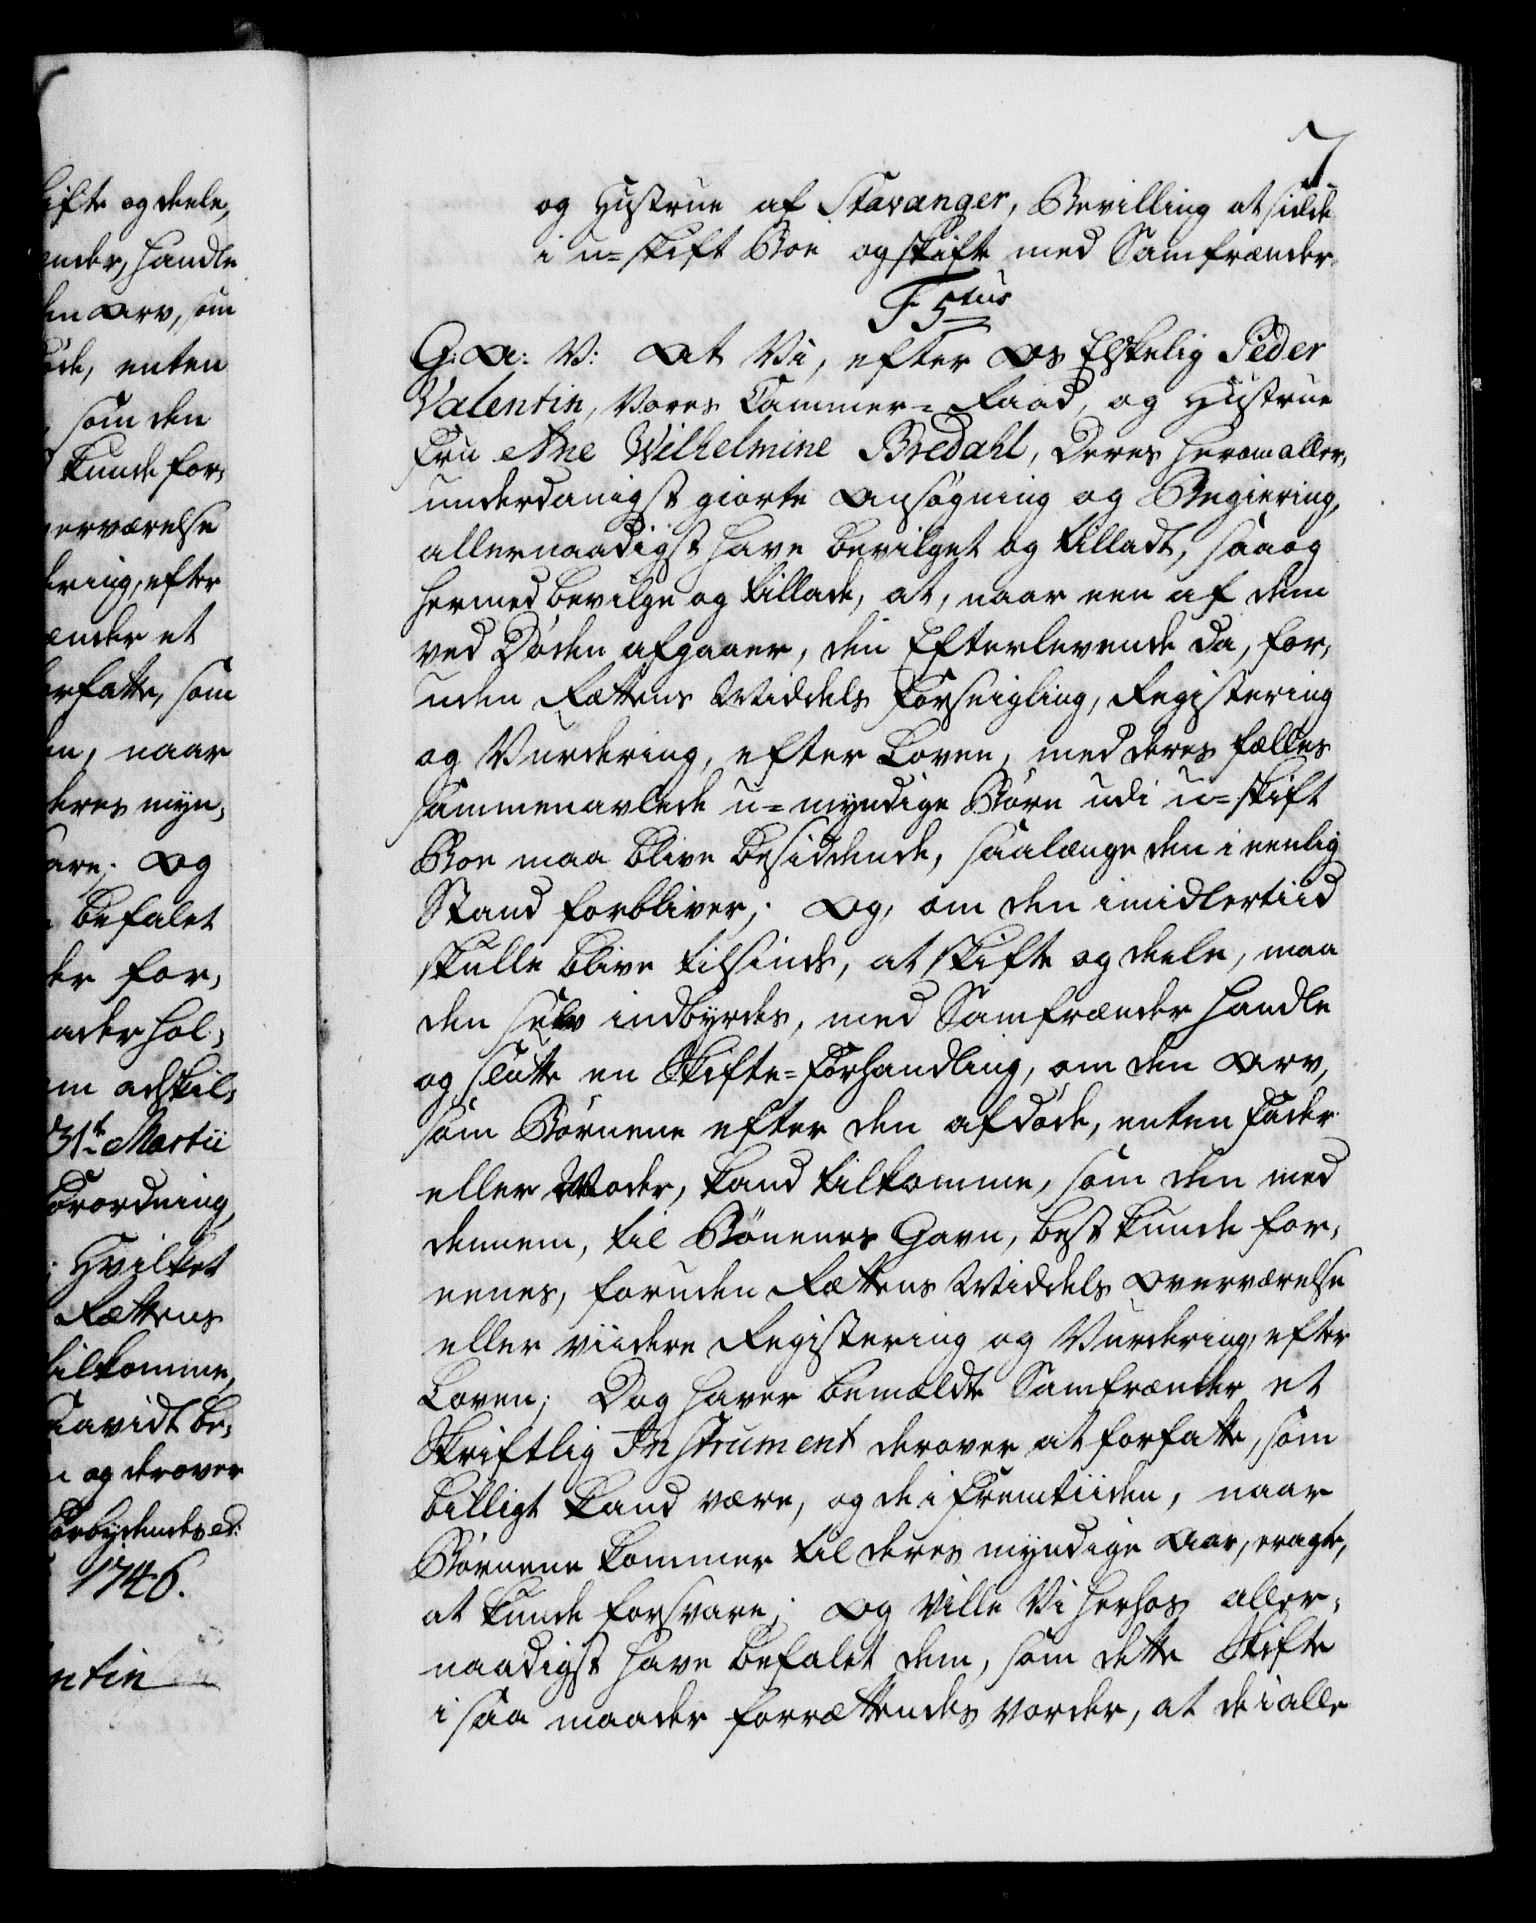 7.
og Hustrue af Stavanger, Bevilling at sidde
i u=skift Boe og skifte med Samfrænder.
F 5tus
G: A: V: At Vi, efter Os Elskelig Peder
Valentin, Vores Cammer=Raad, og Hustrue
Fru Ane Wilhelmine Bredahl, Deres herom aller,
underdanigst giorte Ansøgning og Begiering,
allernaadigst have bevilget og tilladt, saa og
hermed bevilge og tillade, at, naar een af dem
ved Døden afgaaer, den Efterlevende da, for,
uden Rettens Middels Forseigling, Registering
og Vurdering, efter Loven, med deres fælles
sammenavlede u=myndige Børn udi u=skift
Boe maa blive besiddende, saalænge den i eenlig
Stand forbliver; Og, om den imidlertiid
skulle blive tilsinds, at skifte og deele, maa
den selv indbyrdes, med Samfrænder handle
og slutte en Skifte=Forhandling, om den Arv,
som Børnene efter den afdøde, enten Fader
eller Moder, kand tilkomme, som den med
dennem, til Bønenes Gavn, best kunde for,
eenes, foruden Rettens Middels Overværelse
eller viidere Registering og Vurdering, efter
Loven; Dog haver bemældte Samfrænder et
Skriftlig Instrument derover at forfatte, som
billigt kand være, og de i Fremtiiden, naar
Børnene kommer til deres myndige Aar, eragte,
at kunde forsvare; Og Ville Vi herhos aller,
naadigst have befalet dem, som dette Skifte
i saa maader forrettendes vorder, at de i alle
ifte og deele,
ender, handle
den Arv, som
øde, enten
, som den
kunde for,
verværelse
dering, efter
ænder et
orfatte, som
den, naar
deres myn,
are; Og
befalet
der for,
ader hol,
om adskil,
31te Martii
Forordning,
; Hvilket
Rettens
tilkomme,
saavidt be,
n og derover
Forbydendes etc:
1746.
ntin